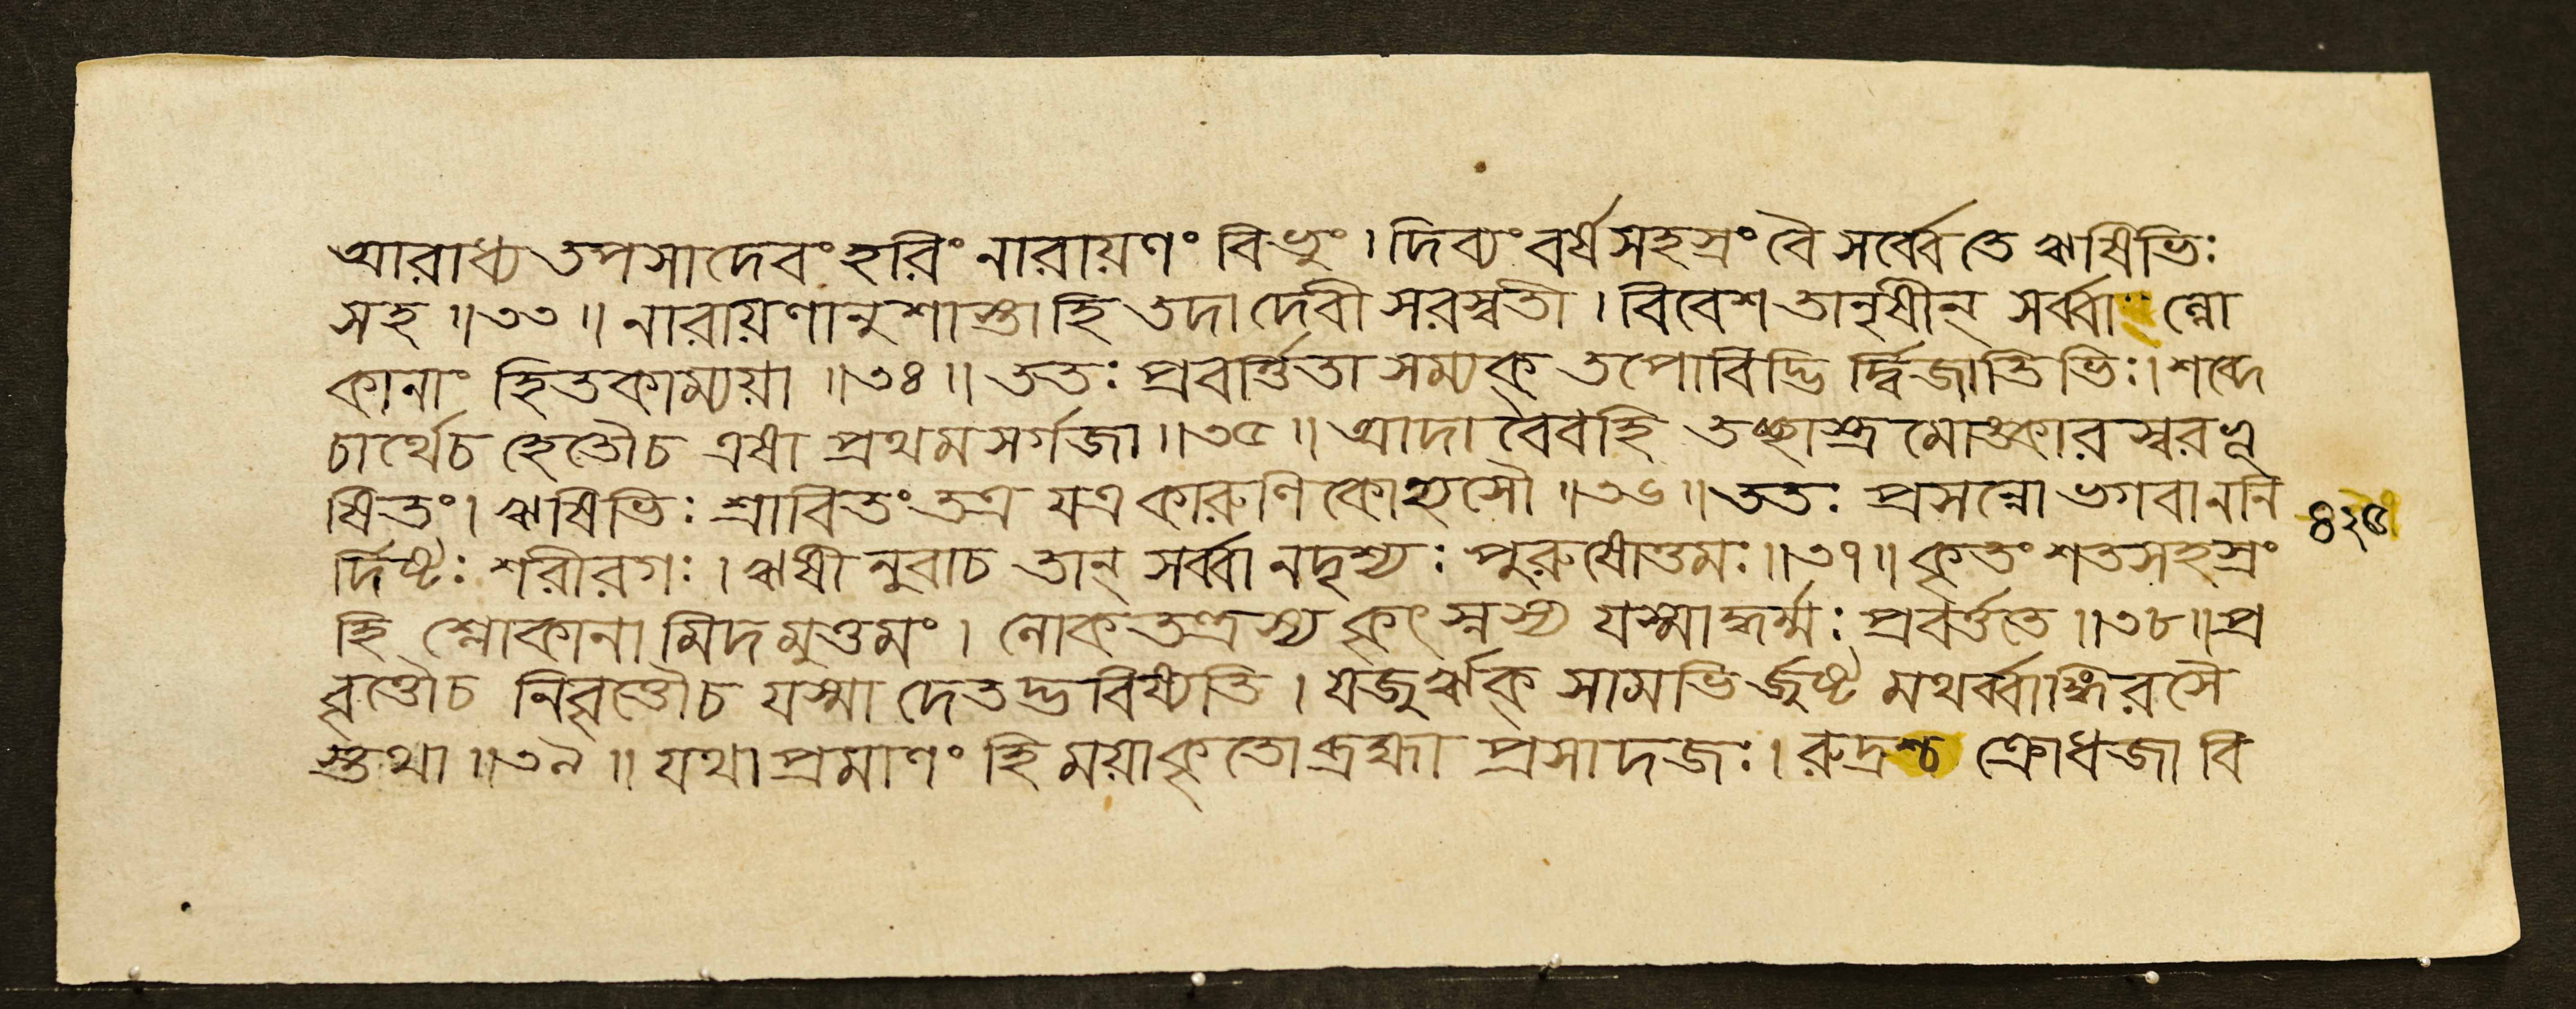 আরাধ্য তপসা দেবং হরিং নারায়ণং বিভুং । দিব্যং বর্ষসহস্রং বৈ সর্ব্বে তে ঋষিভিঃ
সহ ॥৩৩॥ নারায়ণানুশাস্তা হি তদা দেবী সরস্বতী । বিবেশ তানৃষীন্ সর্ব্বা ল্লো
কানাং হিতকাম্যয়া ॥৩৪॥ ততঃ প্রবর্ত্তিতা সম্যক্ তপোবিদ্ভি র্দ্বিজাতিভিঃ । শব্দে
চার্থে চ হেতৌ চ এষা প্রথমসর্গজা ॥৩৫॥ আদাবেব হি তচ্ছাস্ত্র মোঙ্কারস্বরভূ
ষিতং । ঋষিভিঃ শ্রাবিতং তত্র যত্র কারুণিকোহ্যসৌ ॥৩৬॥ ততঃ প্রসন্নো ভগবাননি
র্দিষ্টঃ শরীরগঃ । ঋষীনুবাচ তান্ সর্ব্বানদৃশ্যঃ পুরুষোত্তমঃ ॥৩৭॥ কৃতং শতসহস্রং
হি শ্লোকানামিদমুত্তমং । লোকতন্ত্রস্য কৃৎস্নস্য যস্মাদ্ধর্ম্মঃ প্রবর্ত্ততে ॥৩৮॥ প্র
বৃত্তৌ চ নিবৃত্তৌ চ যস্মাদেতদ্ভবিষ্যতি । যজুর্ঋক্ সামভির্জুষ্ট মথর্ব্বাঙ্গিরসৈ
স্তথা ॥৩৯॥ যথা প্রমাণং হি ময়া কৃতো ব্রহ্মা প্রসাদজঃ । রুদ্রশ্চ ক্রোধজো বি
৪২৫